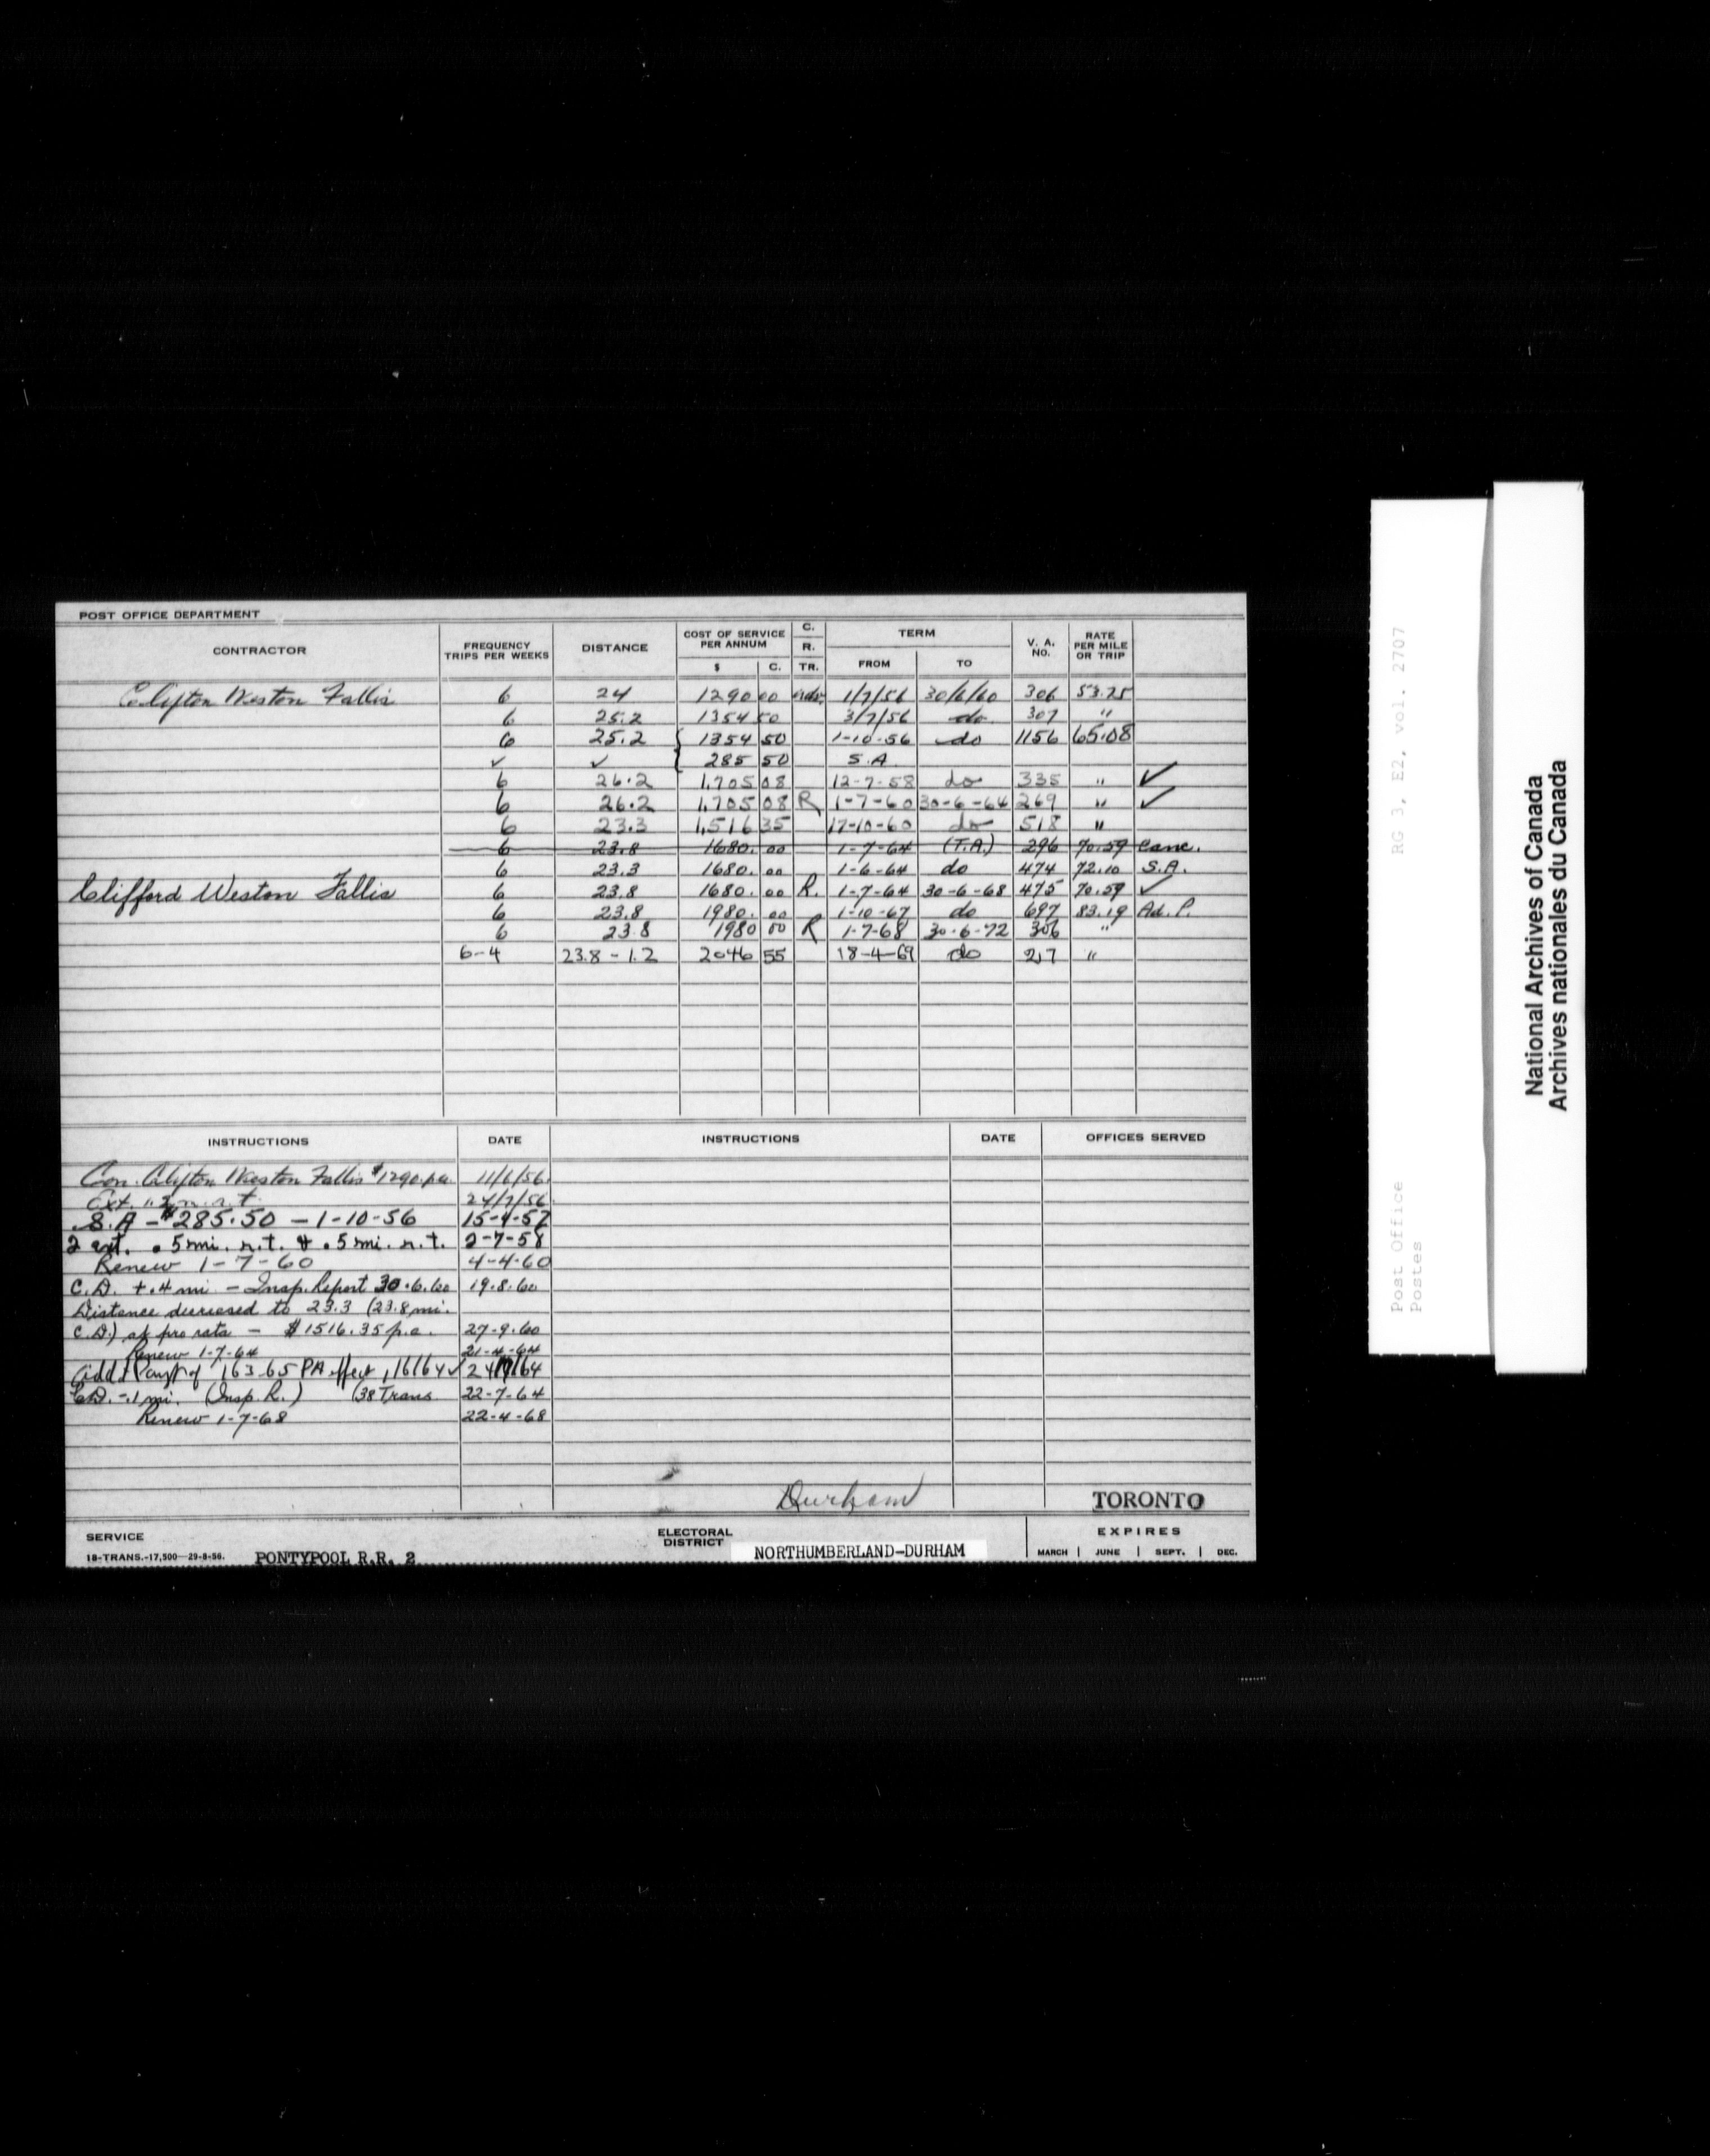 POST OFFICE DEPARTMENT
CONTRACTOR FREQUENCY TRIPS PER WEEKS DISTANCE COST OF SERVICE PER ANNUM $ C. C. R. TR. TERM FROM TO V. A. NO. RATE PER MILE OR TRIP
Clifton Weston Fallis 6 24 1290 00 1/7/56 30/6/60 306 53.75
6 25.2 1354 50 3/7/56 do 307 "
6 25.2 { 1354 50 1-10-56 do 1156 65.08
✓ ✓ { 285 50 S.A
6 26.2 1,705 08 12-7-58 do 335 " ✓
6 26.2 1,705 08 R 1-7-60 30-6-64 269 " ✓
6 23.3 1,516 35 17-10-60 do 518 "
6 23.8 1680. 00 1-7-64 (T.A.) 296 70.59 Canc.
6 23.3 1680. 00 1-6-64 do 474 72.10 S.A.
Clifford Weston Fallis 6 23.8 1680. 00 R. 1-7-64 30-6-68 475 70.59 ✓
6 23.8 1980. 00 1-10-67 do 697 83.19 Ad. P.
6 23.8 1980 00 R 1-7-68 30-6-72 306 "
6-4 23.8 - 1.2 2046 55 18-4-69 do 217 "
INSTRUCTIONS DATE INSTRUCTIONS DATE OFFICES SERVED
Con. Clifton Weston Fallis $1290. p.a. 11/6/56
Ext. r.t. 24/7/56
S.A - $285.50 - 1-10-56 15-4-57
2 ext. .5 mi. r.t. & .5 mi. r.t. 2-7-58
Renew 1-7-60 4-4-60
C.D. +.4 mi - Insp. Report 30.6.60 19.8.60
Distance decreased to 23.3 (23.8 mi.
C.D.) at pro rata - $1516.35 p.a. 27-9-60
Renew 1-7-64 21-4-64
Add'l of 163.65 PA effect 1/6/64 ✓
C.D. -.1 mi. (Insp. R.) (38 Trans 22-7-64
Renew 1-7-68 22-4-68
Durham TORONTO
SERVICE ELECTORAL DISTRICT EXPIRES
18-TRANS.-17,500—29-8-56. PONTYPOOL R.R. 2 NORTHUMBERLAND-DURHAM MARCH | JUNE | SEPT. | DEC.
RG 3, E2, vol. 2707
Post Office
Postes
National Archives of Canada
Archives nationales du Canada